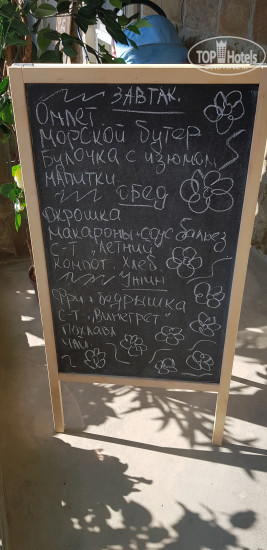 TOP Hotels
ЗАВТАК.
Омлет
морской бутер
Булочка с изюмом
напитки
обед
окрошка
макароны-соус бальез
с-т "летний
компот. хлеб.
Ужин
Фри. Бедрышка
с-т "Винегрет"
Пахлава
чай.